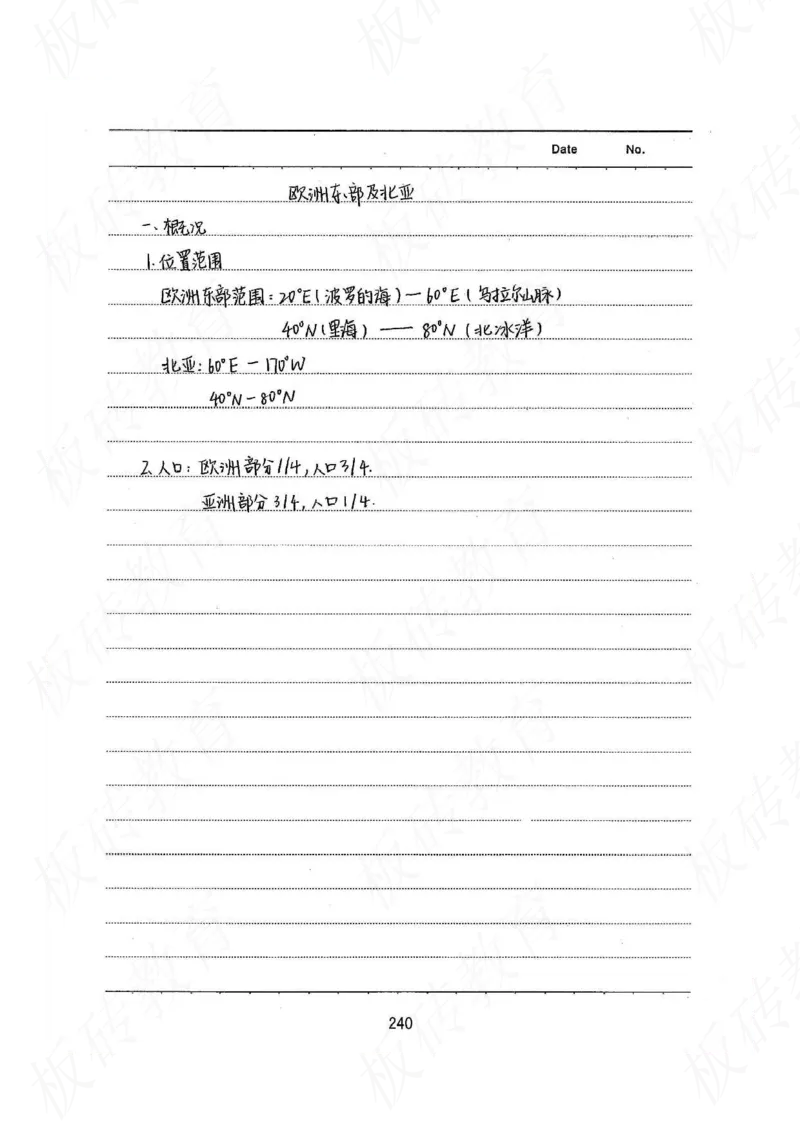 Date No.
欧洲东部及北亚
一、概况
1.位置范围
欧洲东部范围：20°E(波罗的海)—60°E(乌拉尔山脉)
40°N(里海)——80°N(北冰洋)
北亚：60°E-170°W
40°N-80°N
2.人口：欧洲部分1/4,人口3/4.
亚洲部分3/4,人口1/4.
240
板砖教育